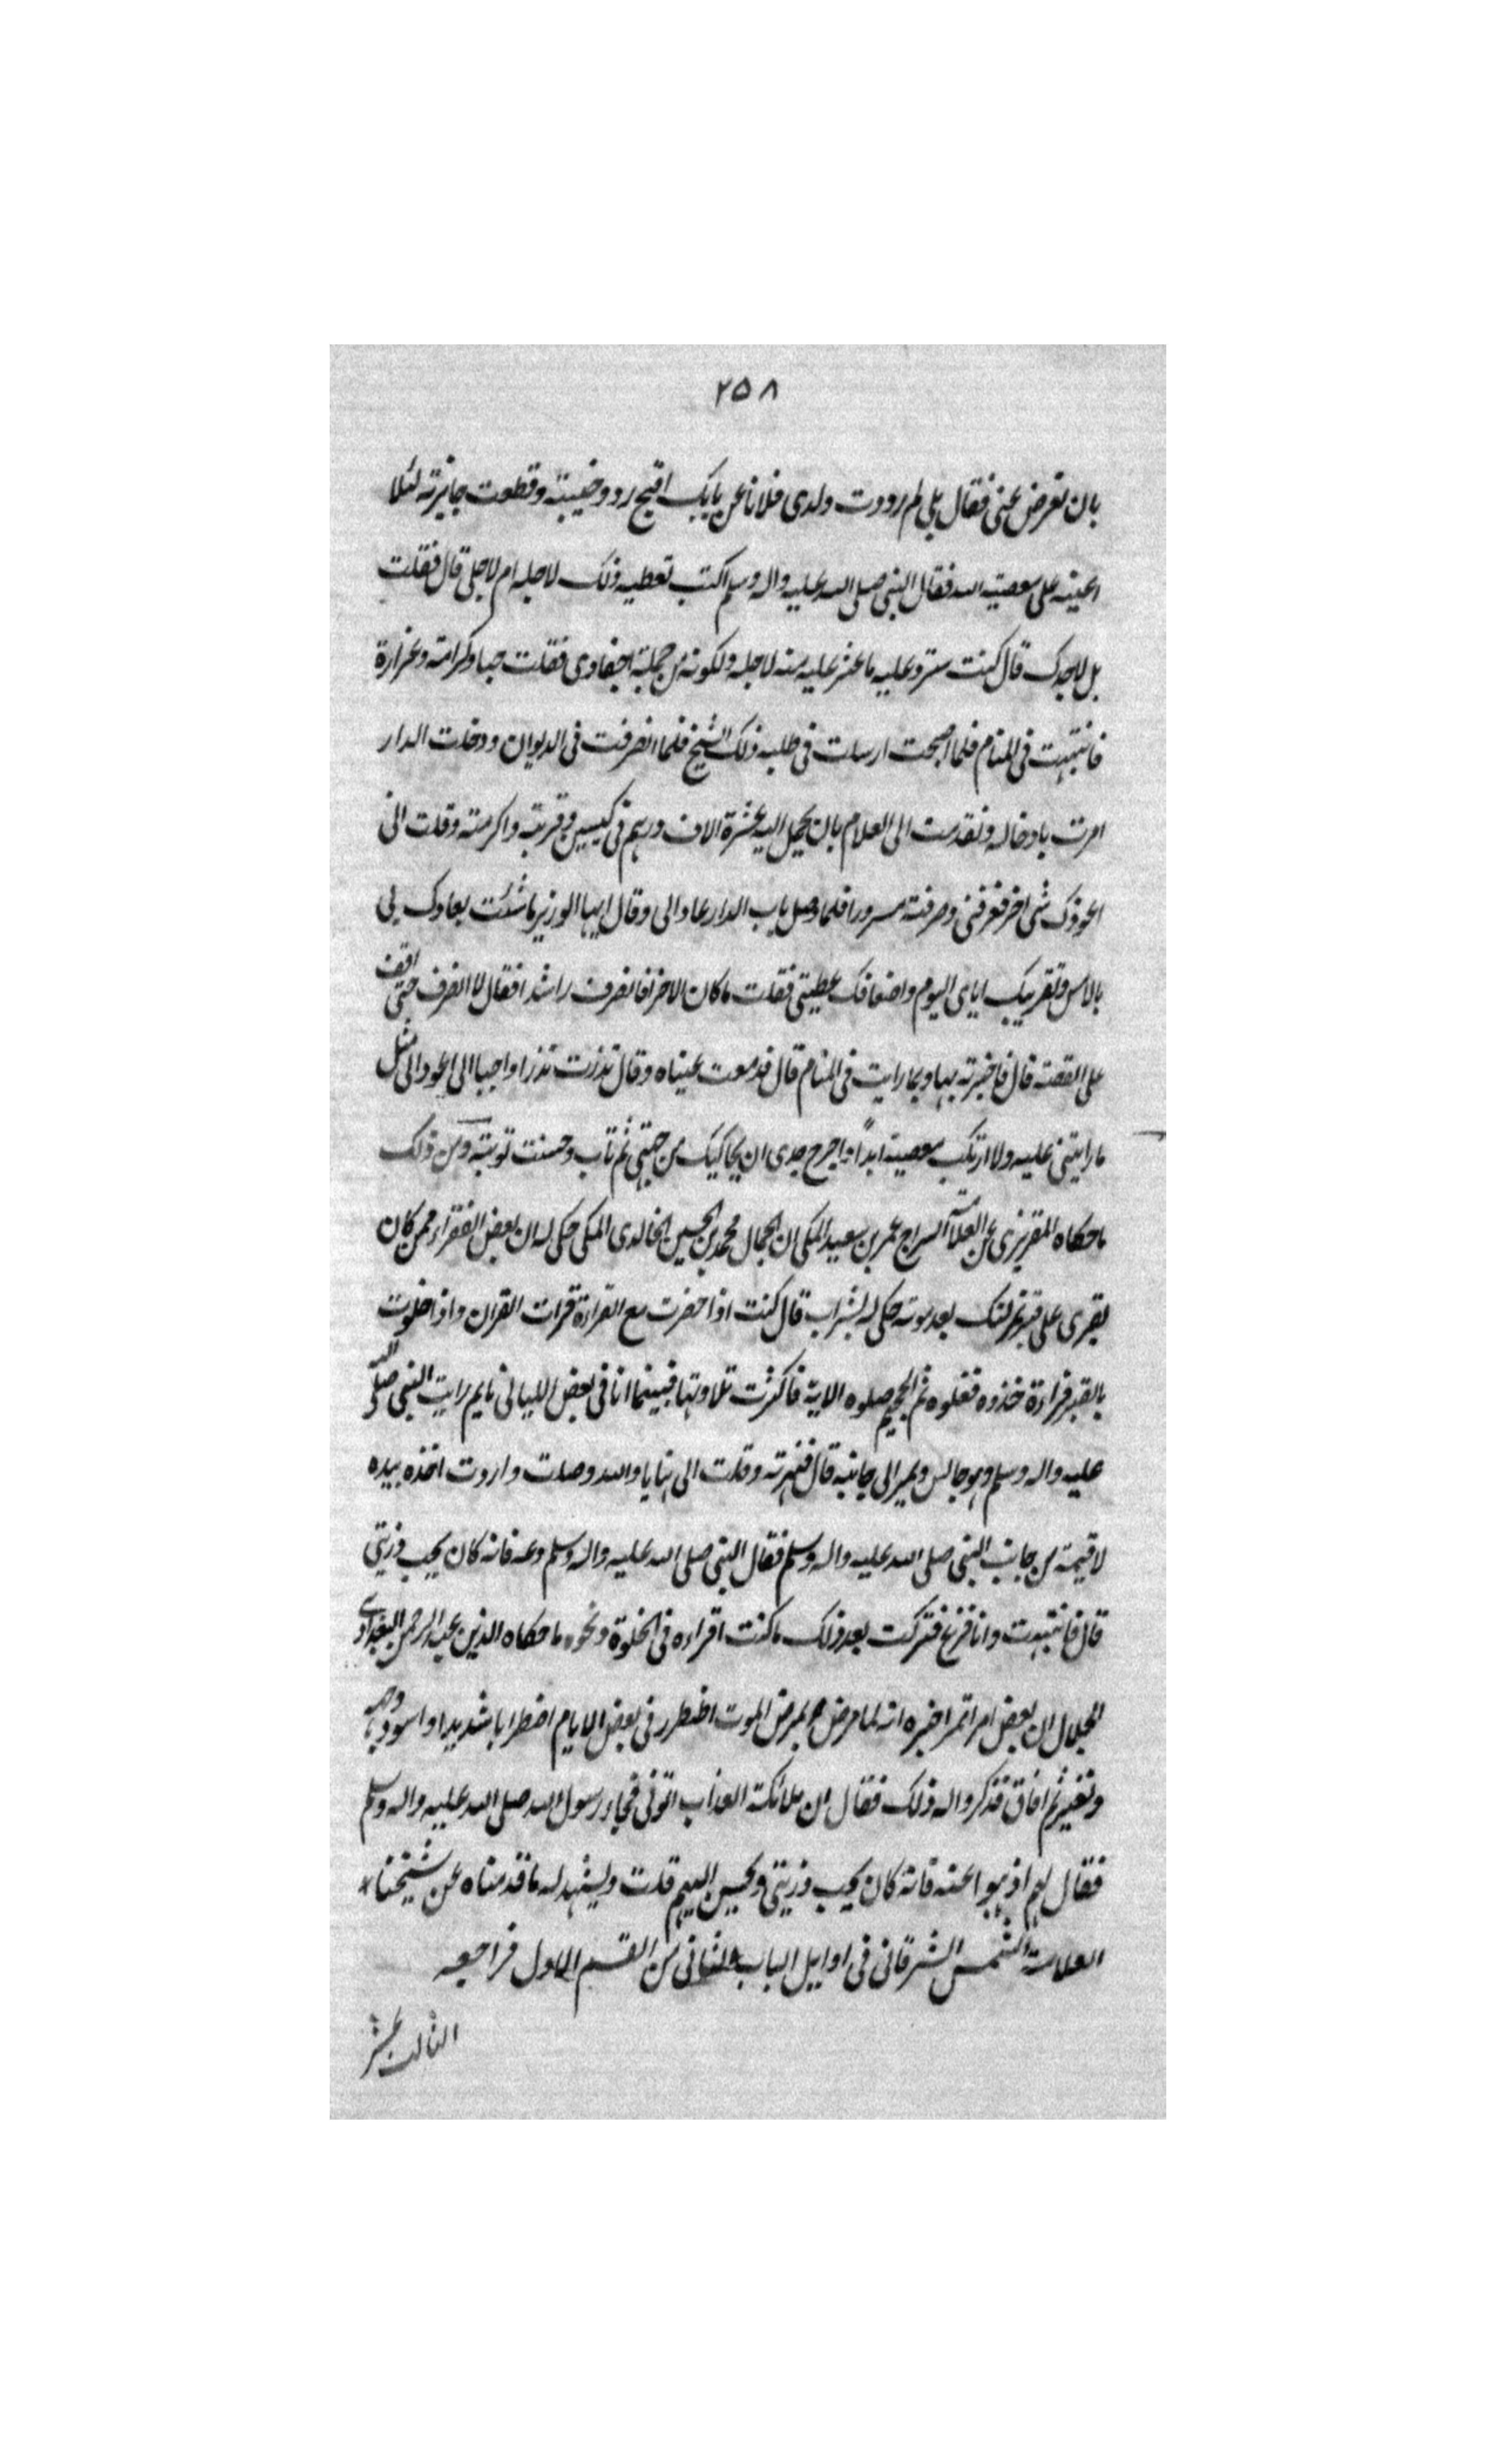 ٢٥٨
بان تعرض عنى فقال بلى لم رددت ولدى فلانا عن بابك اقبح رد وخيبته وقطعت جايزته لئلا
اعينه على معصية الله فقال النبى صلى الله عليه واله وسلم اكنت تعطيه ذلك لاجله ام لاجلى قال فقلت
بل لاجلك قال كنت سترد عليه ما عثر عليه منه لاجله ولكونه من جملة احفادى فقلت حبا وكرامة وعزازة
فانتبهت فى المنام فلما اصبحت ارسلت فى طلبه ذلك الشيخ فلما انصرفت فى الديوان ودخلت الدار
امرت بادخاله وتقدمت الى الغلام بان يحمل اليه عشرة الاف درهم فى كيسين وقربته واكرمته وقلت الى
اعوذك شى اخر فعرفنى وصرفته مسرورا فلما وصل باب الدار عاد الى وقال ايها الوزير ما شئت بعادك لى
بالامس وتقريبك اياى اليوم واضعافك عطيتى فقلت ما كان الا خرا فانصرف راشدا فقال لا انصرف حتى اقف
على القصة قال فاخبرته بها وبما رايت فى المنام قال فدمعت عيناه وقال نذرت نذرا واجبا الى اعود الى مثل
ما رايتنى عليه ولا ارتكب معصية ابدا احرج جدى ان يحاكيك من جهتى ثم تاب وحسنت توبته ومن ذلك
ما حكاه المقريزى عن العلامة السراج عمر بن سعيد المكى ان الجمال محمد بن الحسين الخالدى المكى حكى له ان بعض الفقراء ممن كان
يقرى على قبر تمرلنك بعد موته حكى له بشراب قال كنت اذا حضرت مع القراءة قرات القران واذا خلوت
بالقبر قراءة خذوه فغلوه ثم الجحيم صلوه الاية فاكثرت تلاوتها فبينما انا فى بعض الليالى نايم رايت النبى صلى الله
عليه واله وسلم وهو جالس وتمر الى جانبه قال فنهرته وقلت الى هنا يا عدو الله وصلت واردت اخذه بيده
لاقيمه من جانب النبى صلى الله عليه واله وسلم فقال النبى صلى الله عليه واله وسلم دعه فانه كان يحب ذريتى
قال فانتبهت وانا فزع فتركت بعد ذلك ما كنت اقراءه فى الخلوة ونحوه ما حكاه الزين عبد الرحمن البغدادى
الجلال ان بعض امراء تمر اخبره انه لما مرض تمر بمرض الموت اضطرر فى بعض الايام اضطرابا شديدا واسود وجهه
وتغير ثم افاق فذكروا له ذلك فقال ان ملائكة العذاب اتونى فجاء رسول الله صلى الله عليه واله وسلم
فقال لهم اذهبوا عنه فانه كان يحب ذريتى ويحسن اليهم قلت ويشهد له ما قدمناه عن شيخنا
العلامة الشمس الشرقانى فى اوايل الباب الثانى من القسم الاول فراجعه
الثالث عشر